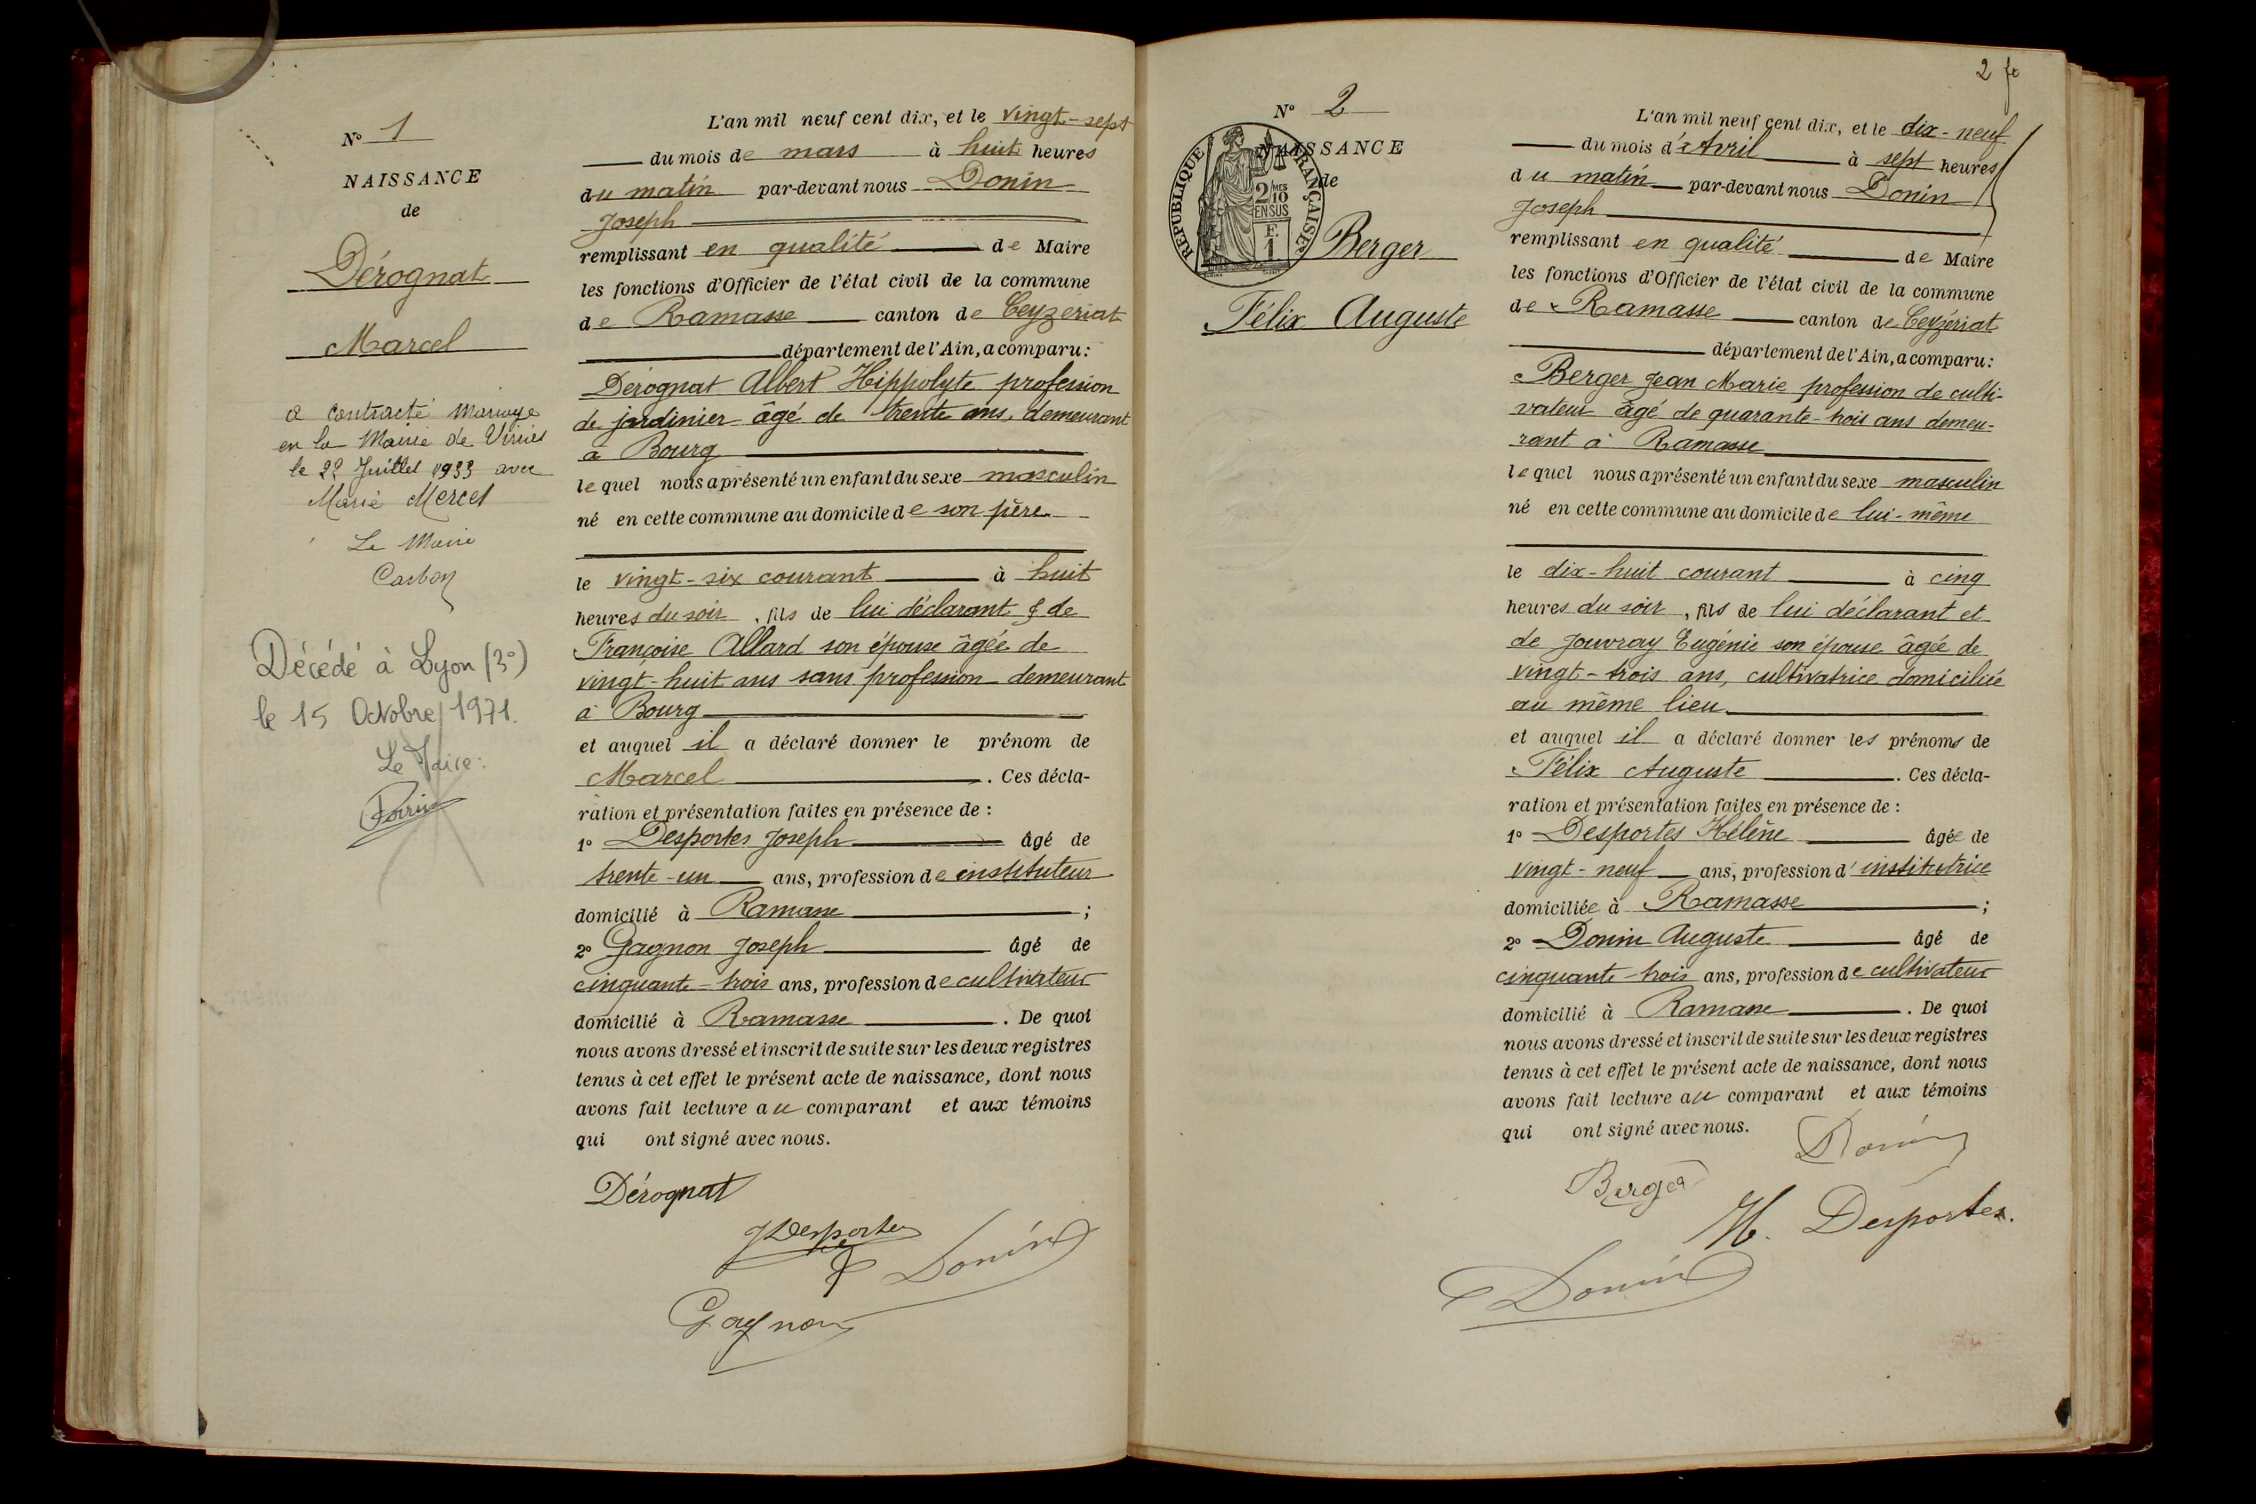 N° 1
NAISSANCE
de
Dérognat
Marcel
a contracté mariage
en la Mairie de
le Juillet 1933 avec
Marie Mercet
Le Maire
Décédé à Lyon (3e)
le 15 Octobre 1971.
Le Maire:
L'an mil neuf cent dix, et le vingt-sept
du mois de mars à huit heures
du matin par-devant nous Donin
Joseph
remplissant en qualité de Maire
les fonctions d'Officier de l'état civil de la commune
de Ramasse canton de Ceyzeriat
département de l'Ain, a comparu:
Dérognat Albert Hippolyte profession
de jardinier âgé de trente ans, demeurant
à Bourg
lequel nous a présenté un enfant du sexe masculin
né en cette commune au domicile de son père
le vingt-six courant à huit
heures du soir, fils de lui déclarant & de
Françoise Allard son épouse âgée de
vingt-huit ans sans profession demeurant
à Bourg
et auquel il a déclaré donner le prénom de
Marcel. Ces décla-
ration et présentation faites en présence de:
1° Desportes Joseph âgé de
trente-un ans, profession de instituteur
domicilié à Ramasse;
2° Gagnon Joseph âgé de
cinquante-trois ans, profession de cultivateur
domicilié à Ramasse. De quoi
nous avons dressé et inscrit de suite sur les deux registres
tenus à cet effet le présent acte de naissance, dont nous
avons fait lecture au comparant et aux témoins
qui ont signé avec nous.
Dérognat
J Desportes
Donin
Gagnon
2 fe
N° 2
NAISSANCE
de
RÉPUBLIQUE FRANÇAISE
2/10 MES
EN SUS
F.
1
Berger
Félix Auguste
L'an mil neuf cent dix, et le dix-neuf
du mois d'Avril à sept heures
du matin par-devant nous Donin
Joseph
remplissant en qualité de Maire
les fonctions d'Officier de l'état civil de la commune
de Ramasse canton de Ceyzériat
département de l'Ain, a comparu:
Berger Jean Marie profession de culti-
vateur âgé de quarante-trois ans demeu-
rant à Ramasse
lequel nous a présenté un enfant du sexe masculin
né en cette commune au domicile de lui-même
le dix-huit courant à cinq
heures du soir, fils de lui déclarant et
de Jouvray Eugénie son épouse âgée de
vingt-trois ans, cultivatrice domiciliée
au même lieu
et auquel il a déclaré donner les prénoms de
Félix Auguste. Ces décla-
ration et présentation faites en présence de:
1° Desportes Hélène âgée de
vingt-neuf ans, profession d'institutrice
domiciliée à Ramasse;
2° Donin Auguste âgé de
cinquante-trois ans, profession de cultivateur
domicilié à Ramasse. De quoi
nous avons dressé et inscrit de suite sur les deux registres
tenus à cet effet le présent acte de naissance, dont nous
avons fait lecture au comparant et aux témoins
qui ont signé avec nous.
Donin
Berger
H. Desportes.
Donin